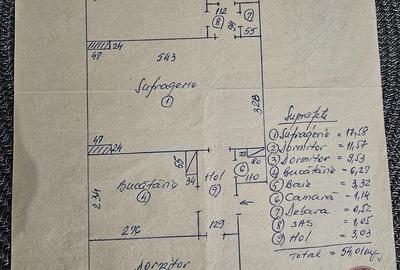 112
8
7
84
55
47
24
543
Sufragerie
1
328
47
24
55
34
Hol
9
22
80
6
110
Bucătărie
4
234
276
129
Dormitor
Suprafețe
1 Sufragerie = 17,58
2 Dormitor = 11,57
3 Dormitor = 9,53
4 Bucătărie = 6,27
5 Baie = 3,32
6 Camară = 1,14
7 Debara = 0,52
8 SAS = 1,05
9 Hol = 3,03
Total = 54,01 mp